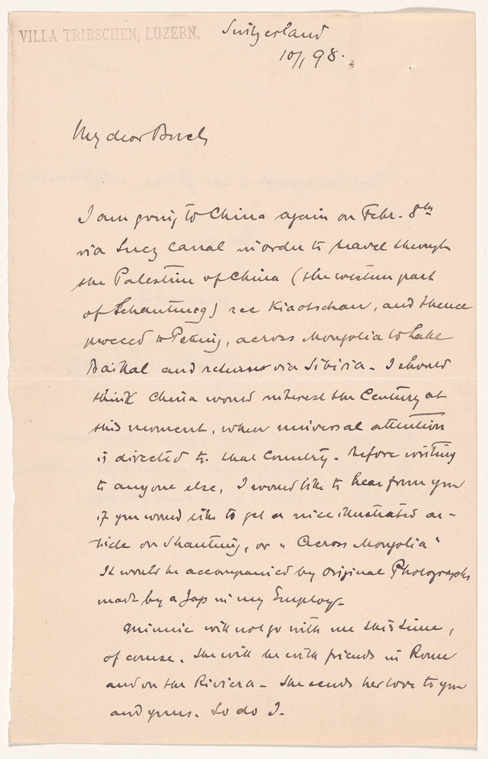 VILLA TRIBSCHEN, LUZERN.
Switzerland
10/1 98.
My dear Buel
I am going to China again on Febr. 8th
via Suez Canal in order to travel through
the Palestine of China (the western part
of Schantung) see Kiaotschau, and thence
proceed to Peking, across Mongolia to Lake
Baikal and return via Sibiria - I should
think China would interest the Century at
this moment, when universal attention
is directed to that Country. Before writing
to anyone else, I would like to hear from you
if you would like to get a nice illustrated ar-
ticle on Shantung, or "Across Mongolia"
It would be accompanied by original Photographs
made by a Jap in my Employ.
Minnie will not go with me this time,
of course. She will be with friends in Rome
and on the Riviera - She sends her love to you
and yours. So do I.